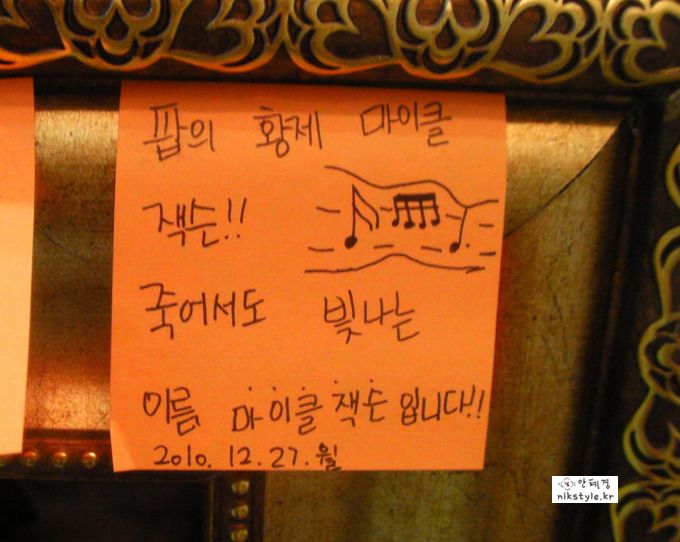 팝의 황제 마이클
잭슨!!
죽어서도 빛나는
이름, 마이클 잭슨 입니다!!
2010. 12. 27. 월
안혜경
nikstyle.kr